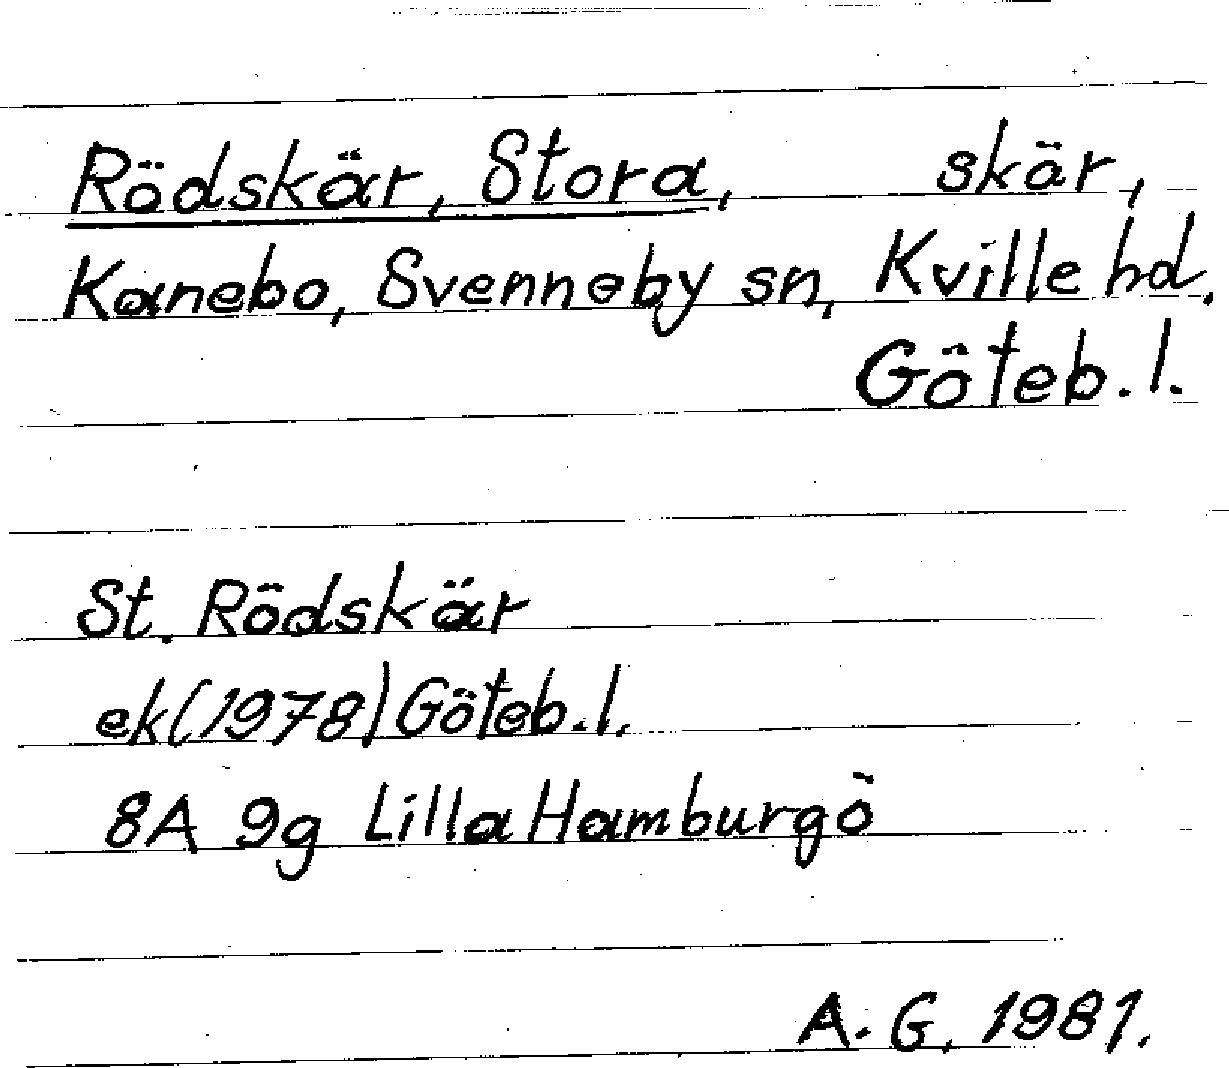 Rödskär, Stora, skär,
Kanebo, Svenneby sn, Kville hd.
Göteb. l.
St. Rödskär
ek (1978) Göteb. l.
8A 9g Lilla Hamburgö
A. G. 1981.